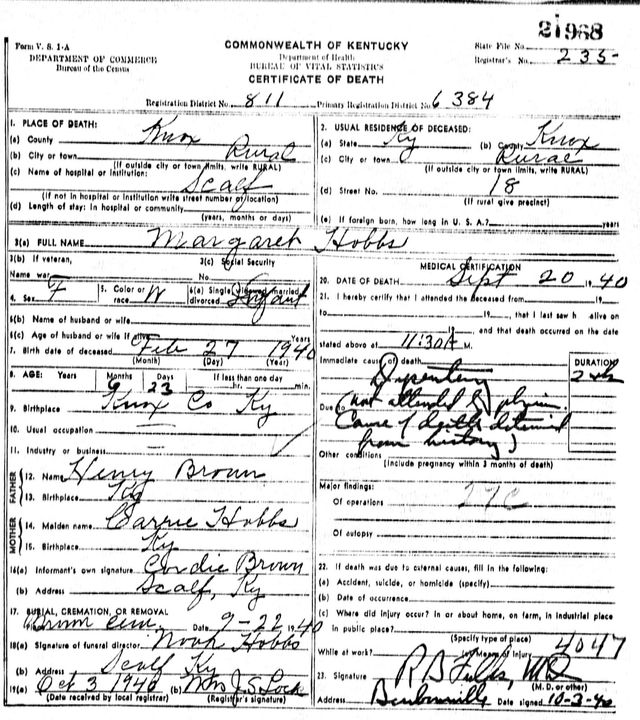 21968
Form V. S. 1-A
DEPARTMENT OF COMMERCE
Bureau of the Census
COMMONWEALTH OF KENTUCKY
Department of Health
BUREAU OF VITAL STATISTICS
CERTIFICATE OF DEATH
State File No.
Registrar's No. 235-
Registration District No. 811 Primary Registration District No. 6384
1. PLACE OF DEATH:
(a) County Knox
(b) City or town Rural
(If outside city or town limits, write RURAL)
(c) Name of hospital or institution:
Scalf
(If not in hospital or institution write street number or location)
(d) Length of stay: In hospital or community
(years, months or days)
2. USUAL RESIDENCE OF DECEASED:
(a) State Ky (b) County Knox
(c) City or town Rural
(If outside city or town limits, write RURAL)
(d) Street No. 18
(If rural give precinct)
(e) If foreign born, how long in U. S. A.? years
3(a) FULL NAME Margaret Hobbs
3(b) If veteran, 3(c) Social Security
Name war No.
4. Sex F 5. Color or race W 6(a) Single, widowed, married, divorced Infant
6(b) Name of husband or wife
6(c) Age of husband or wife if alive Years
7. Birth date of deceased Feb 27 1940
(Month) (Day) (Year)
8. AGE: Years Months Days If less than one day
23 hr. min.
9. Birthplace Knox Co Ky
10. Usual occupation
11. Industry or business
FATHER
12. Name Henry Brown
13. Birthplace Ky
MOTHER
14. Maiden name Carrie Hobbs
15. Birthplace Ky
16(a) Informant's own signature Cordie Brown
(b) Address Scalf, Ky
17. BURIAL, CREMATION, OR REMOVAL
Place Brown Cem. Date 9-22 1940
18(a) Signature of funeral director Noah Hobbs
(b) Address Scalf Ky
19(a) Oct 3 1940 (b) Mrs J. S. Lock
(Date received by local registrar) (Registrar's signature)
MEDICAL CERTIFICATION
20. DATE OF DEATH Sept 20 1940
21. I hereby certify that I attended the deceased from 19
to 19 , that I last saw h alive on
19 , and that death occurred on the date
stated above at 11:30A M.
Immediate cause of death DURATION
Dysentery 2 wks
Due to (not attended by physician
Cause of death determined
from history)
Other conditions
(Include pregnancy within 3 months of death)
Major findings:
Of operations 27C
Of autopsy
22. If death was due to external causes, fill in the following:
(a) Accident, suicide, or homicide (specify)
(b) Date of occurrence
(c) Where did injury occur? In or about home, on farm, in industrial place
in public place?
(Specify type of place)
While at work? (e) Means of injury 4047
23. Signature R B Fulks, MD
(M. D. or other)
Address Barbourville Date signed 10-3-40